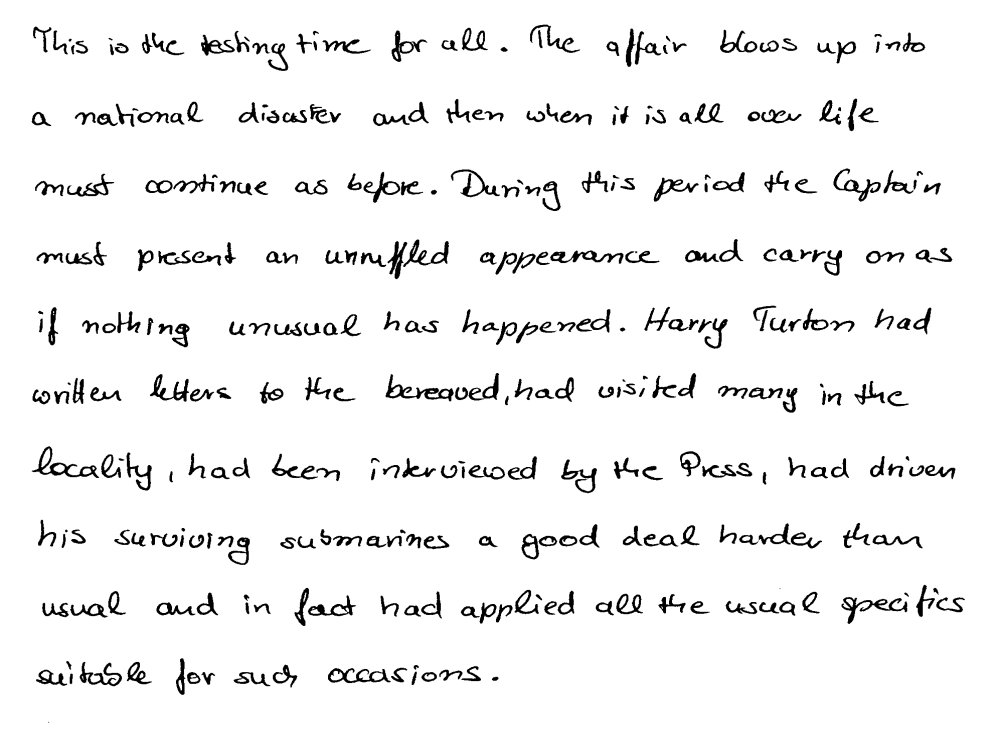 This is the testing time for all. The affair blows up into
a national disaster and then when it is all over life
must continue as before. During this period the Captain
must present an unruffled appearance and carry on as
if nothing unusual has happened. Harry Turton had
written letters to the bereaved, had visited many in the
locality, had been interviewed by the Press, had driven
his surviving submarines a good deal harder than
usual and in fact had applied all the usual specifics
suitable for such occasions.